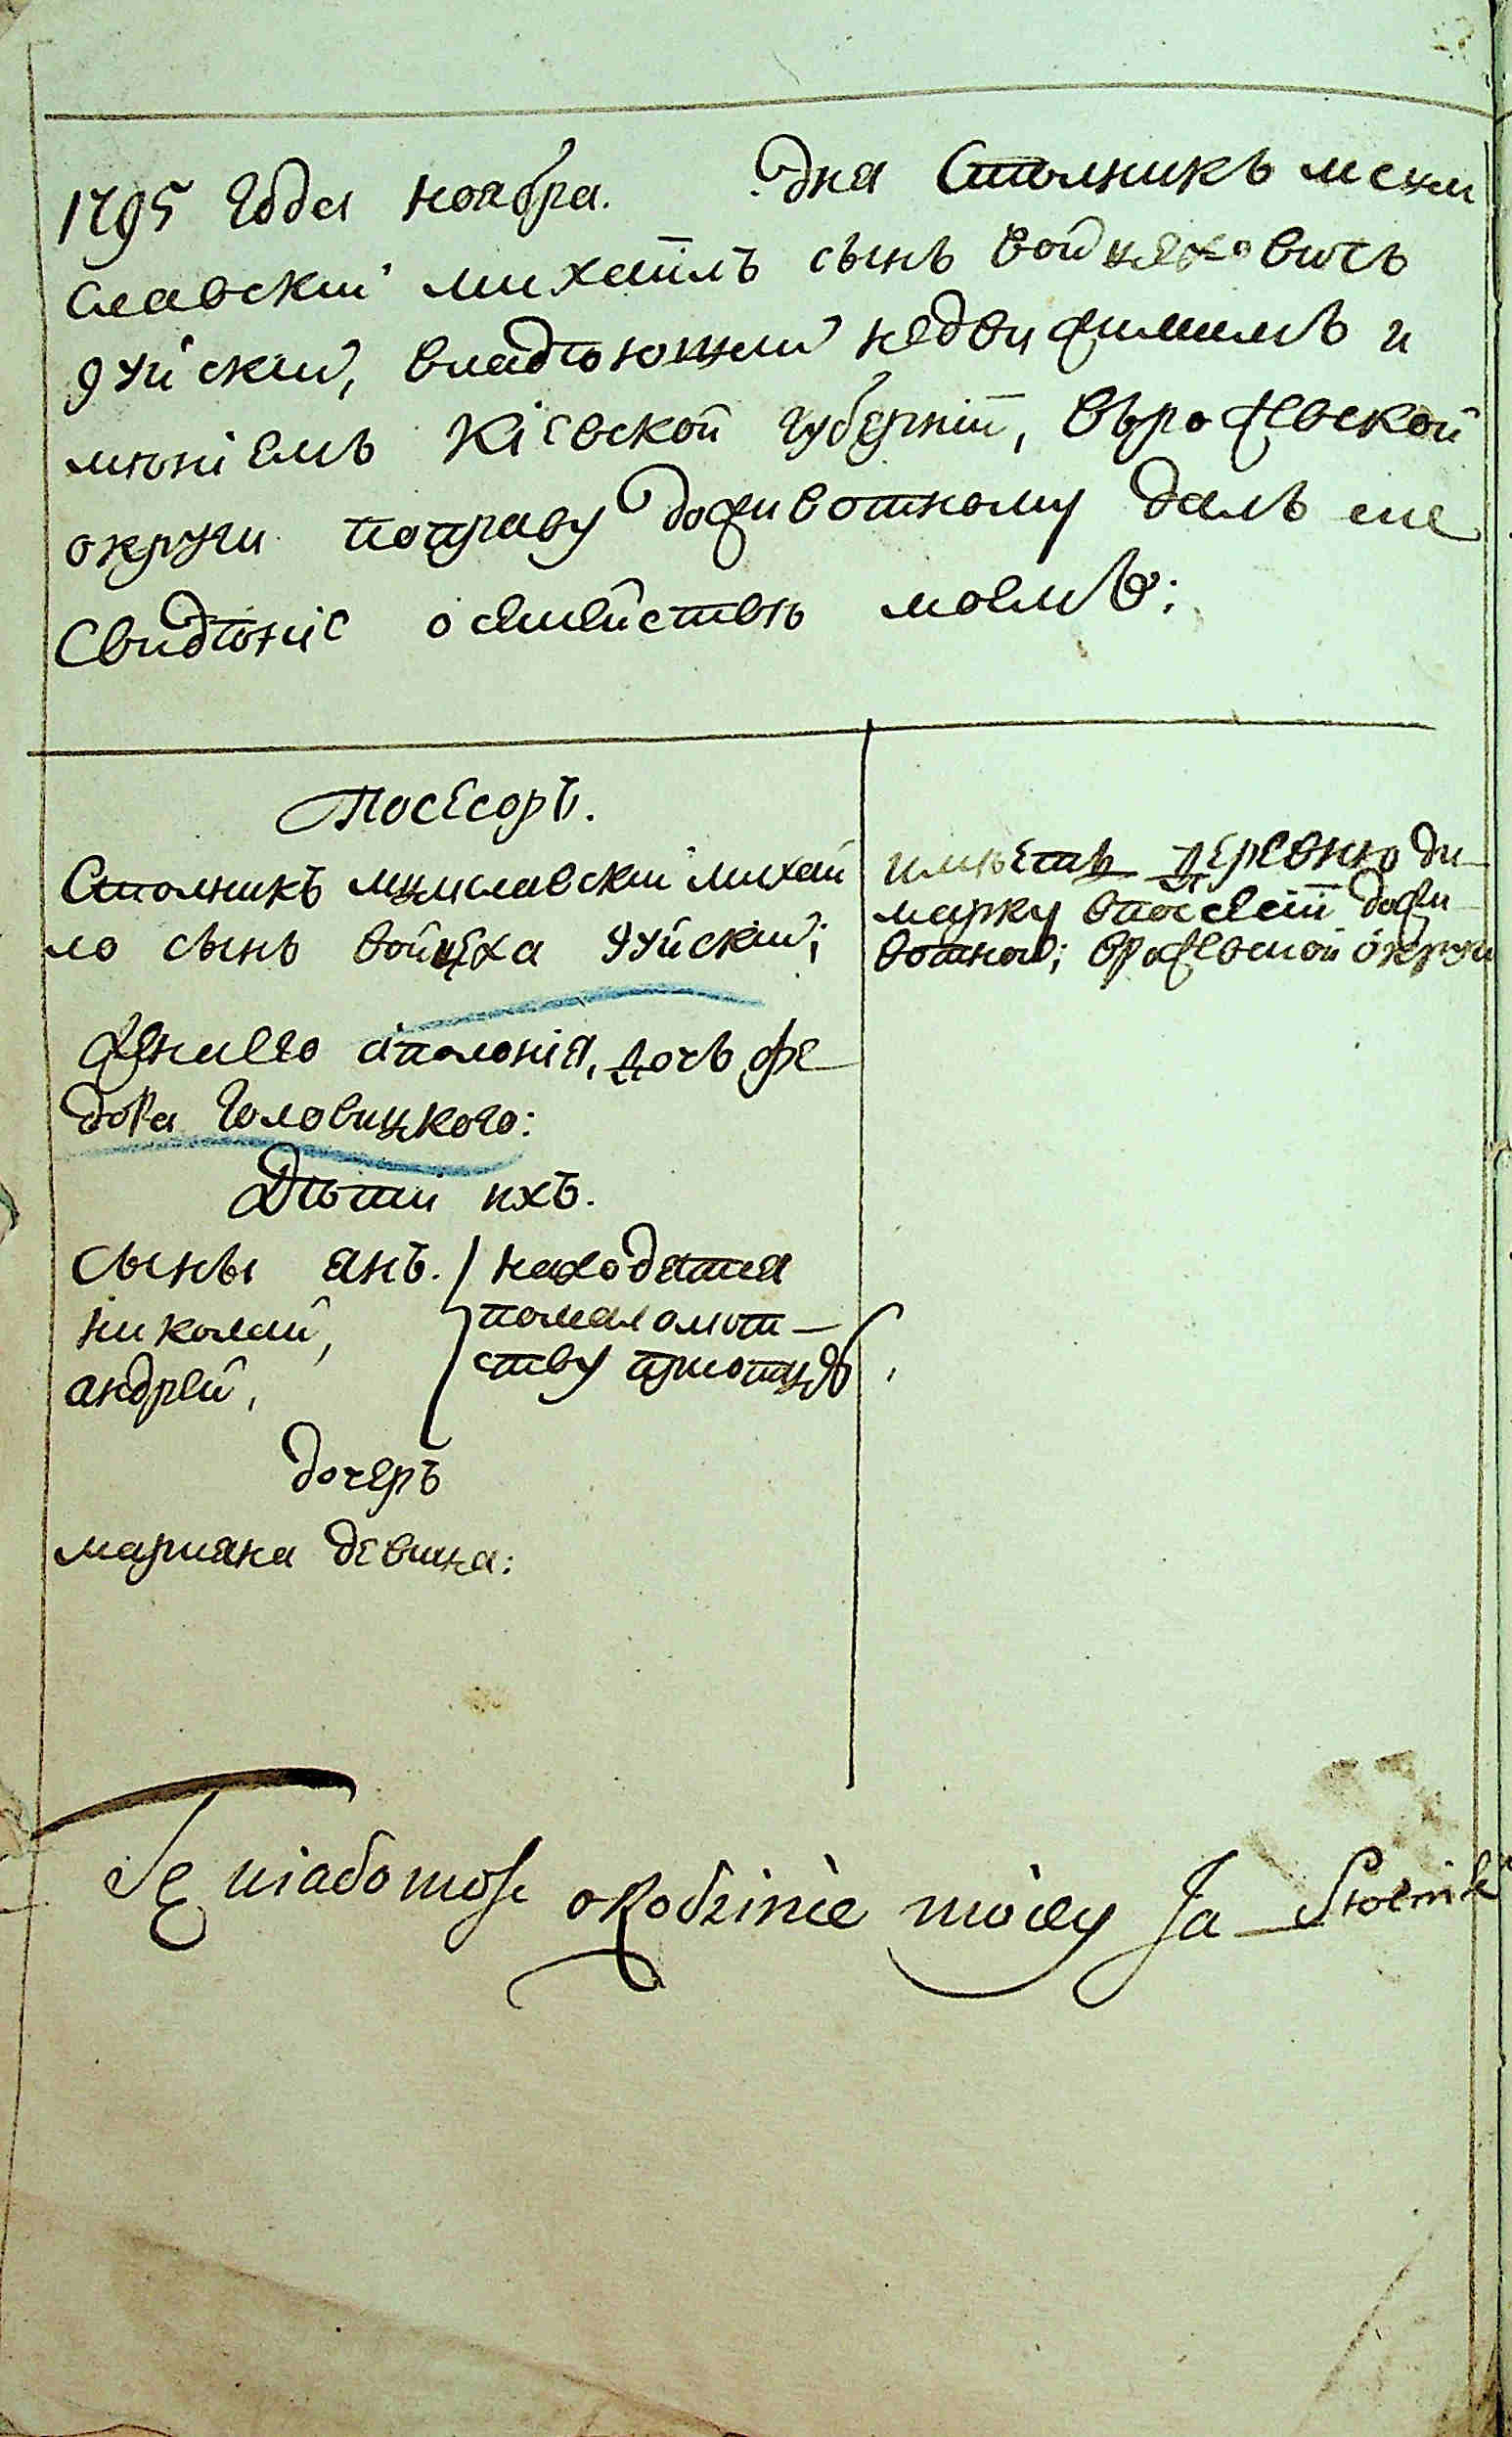 1795 года ноября. Дня Столникъ мсти
славский михаилъ сынъ войцеховичъ
владѣющий недвижимимъ и
мѣніемъ Кіевской губерніи, въ рожевской
округи поправу доживотному далъ сие
Свидѣніе о семействѣ моемъ:
Посесоръ.
Столникъ мцмславский михай
ло сынъ войцеха
жена его аполонія, дочь фе
дора Головицкого:
Дѣти ихъ.
сыны янъ.
николай,
андрей,
находятся
помалолѣт-
ству приотцѣ
дочеръ
марияна девица:
имѣетъ деревню ди-
марку впосесии дожи
вотной; врожевской округи
Tę wiadomość o Rodzinie moiey Ja Stolnik